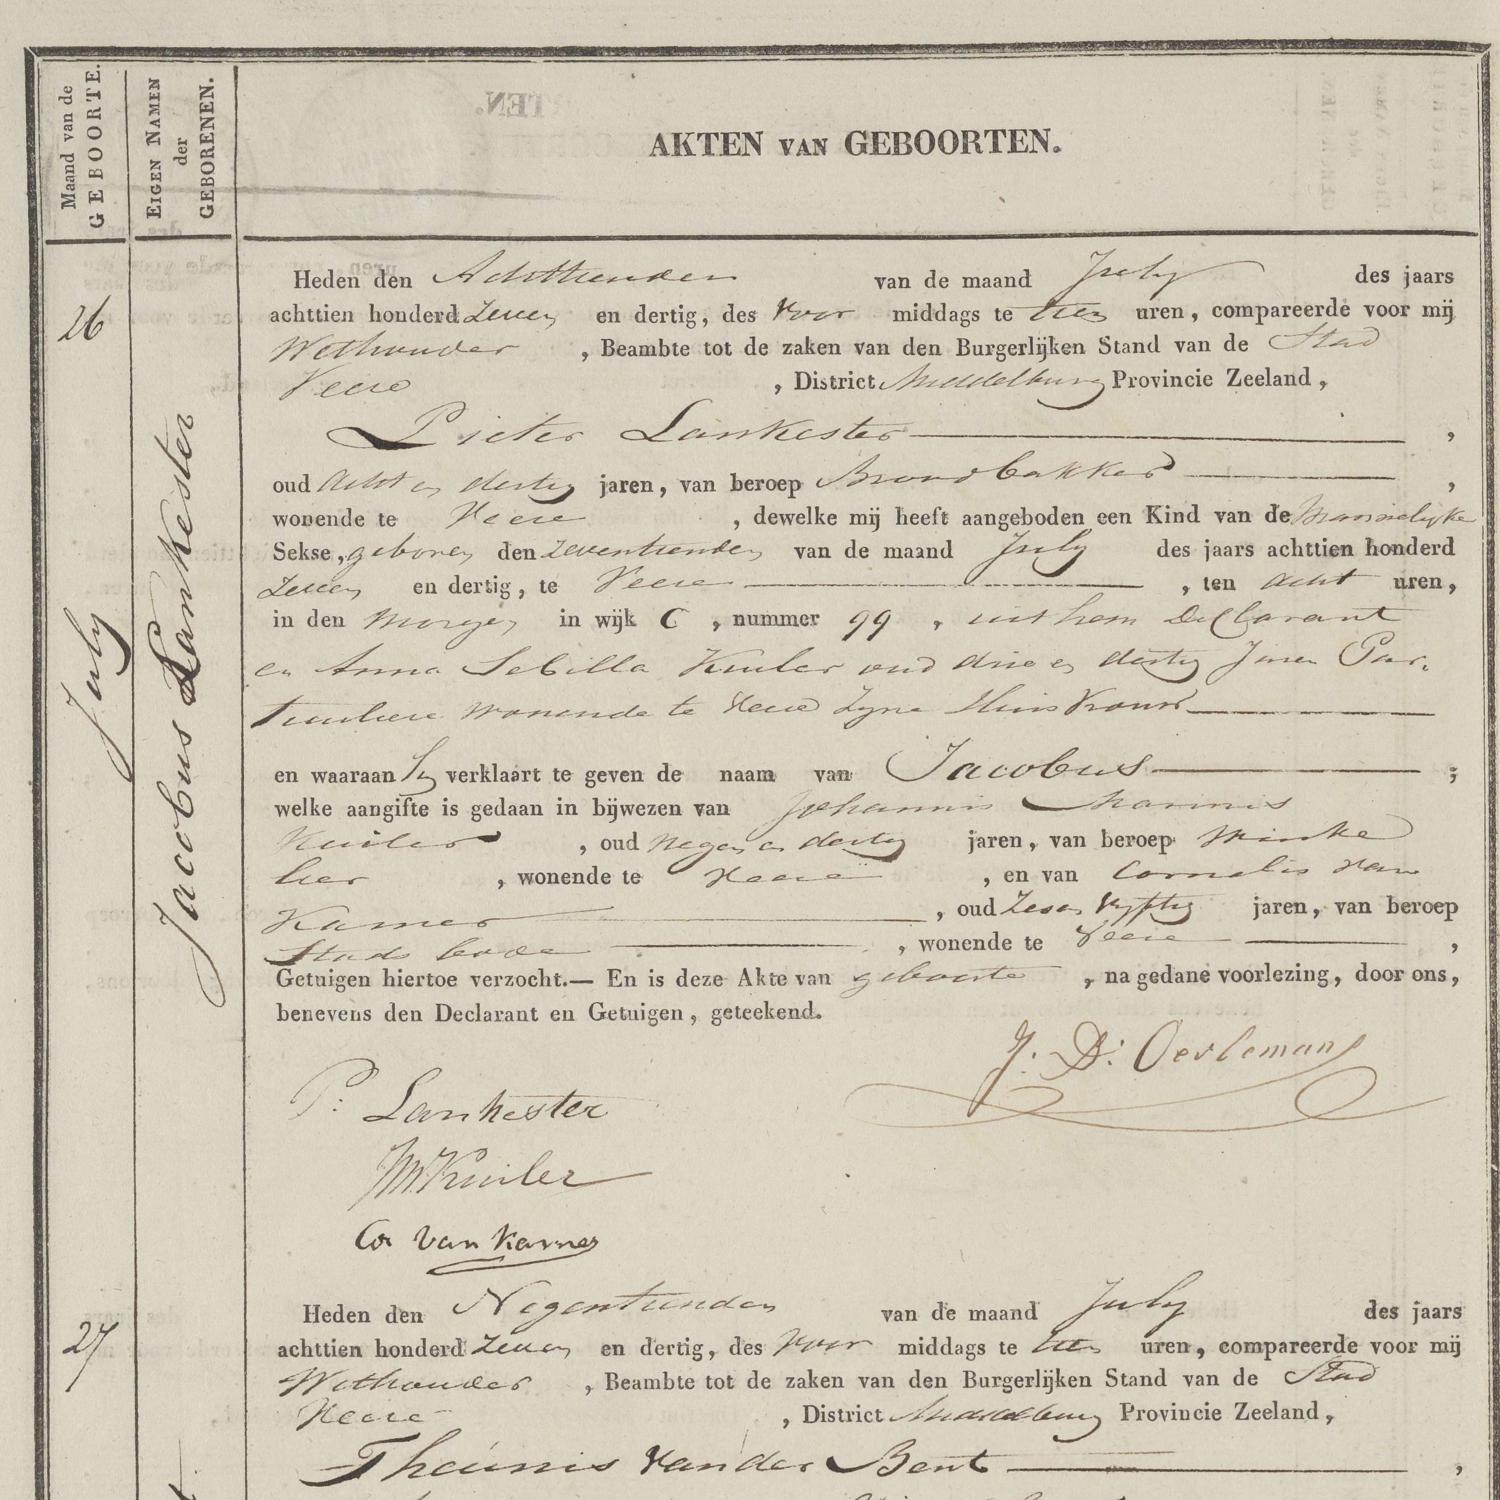 Maand van de
GEBOORTE.
EIGEN NAMEN
der
GEBORENEN.
AKTEN VAN GEBOORTEN.
26
July
Jacobus Lankester
Heden den Achttienden van de maand July des jaars
achttien honderd Zeven en dertig, des Voor middags te tien uren, compareerde voor mij
Wethouder, Beambte tot de zaken van den Burgerlijken Stand van de Stad
Veere, District Middelburg Provincie Zeeland,
Pieter Lankester,
oud Acht en dertig jaren, van beroep Broodbakker,
wonende te Veere, dewelke mij heeft aangeboden een Kind van de Mannelyke
Sekse, geboren den Zeventienden van de maand July des jaars achttien honderd
Zeven en dertig, te Veere, ten acht uren,
in den Morgen in wijk C, nummer 99, uit hem Declarant
en Anna Sebilla Kuiler oud drie en dertig Jaren Par-
tuculiere wonende te Veere Zyne Huisvrouw
en waaraan hy verklaart te geven de naam van Jacobus;
welke aangifte is gedaan in bijwezen van Johannis Marinus
Kuiler, oud Negen en dertig jaren, van beroep Winke
lier, wonende te Veere, en van Cornelis van
Kamer, oud Zes en Vyftig jaren, van beroep
Stads bode, wonende te Veere,
Getuigen hiertoe verzocht.— En is deze Akte van geboorte, na gedane voorlezing, door ons,
benevens den Declarant en Getuigen, geteekend.
J. D: Oerlemans
P: Lankester
JM Kuiler
Co van Kamer
27
Heden den Negentienden van de maand July des jaars
achttien honderd Zeven en dertig, des Voor middags te tien uren, compareerde voor mij
Wethouder, Beambte tot de zaken van den Burgerlijken Stand van de Stad
Veere, District Middelburg Provincie Zeeland,
Theunis van der Bent,